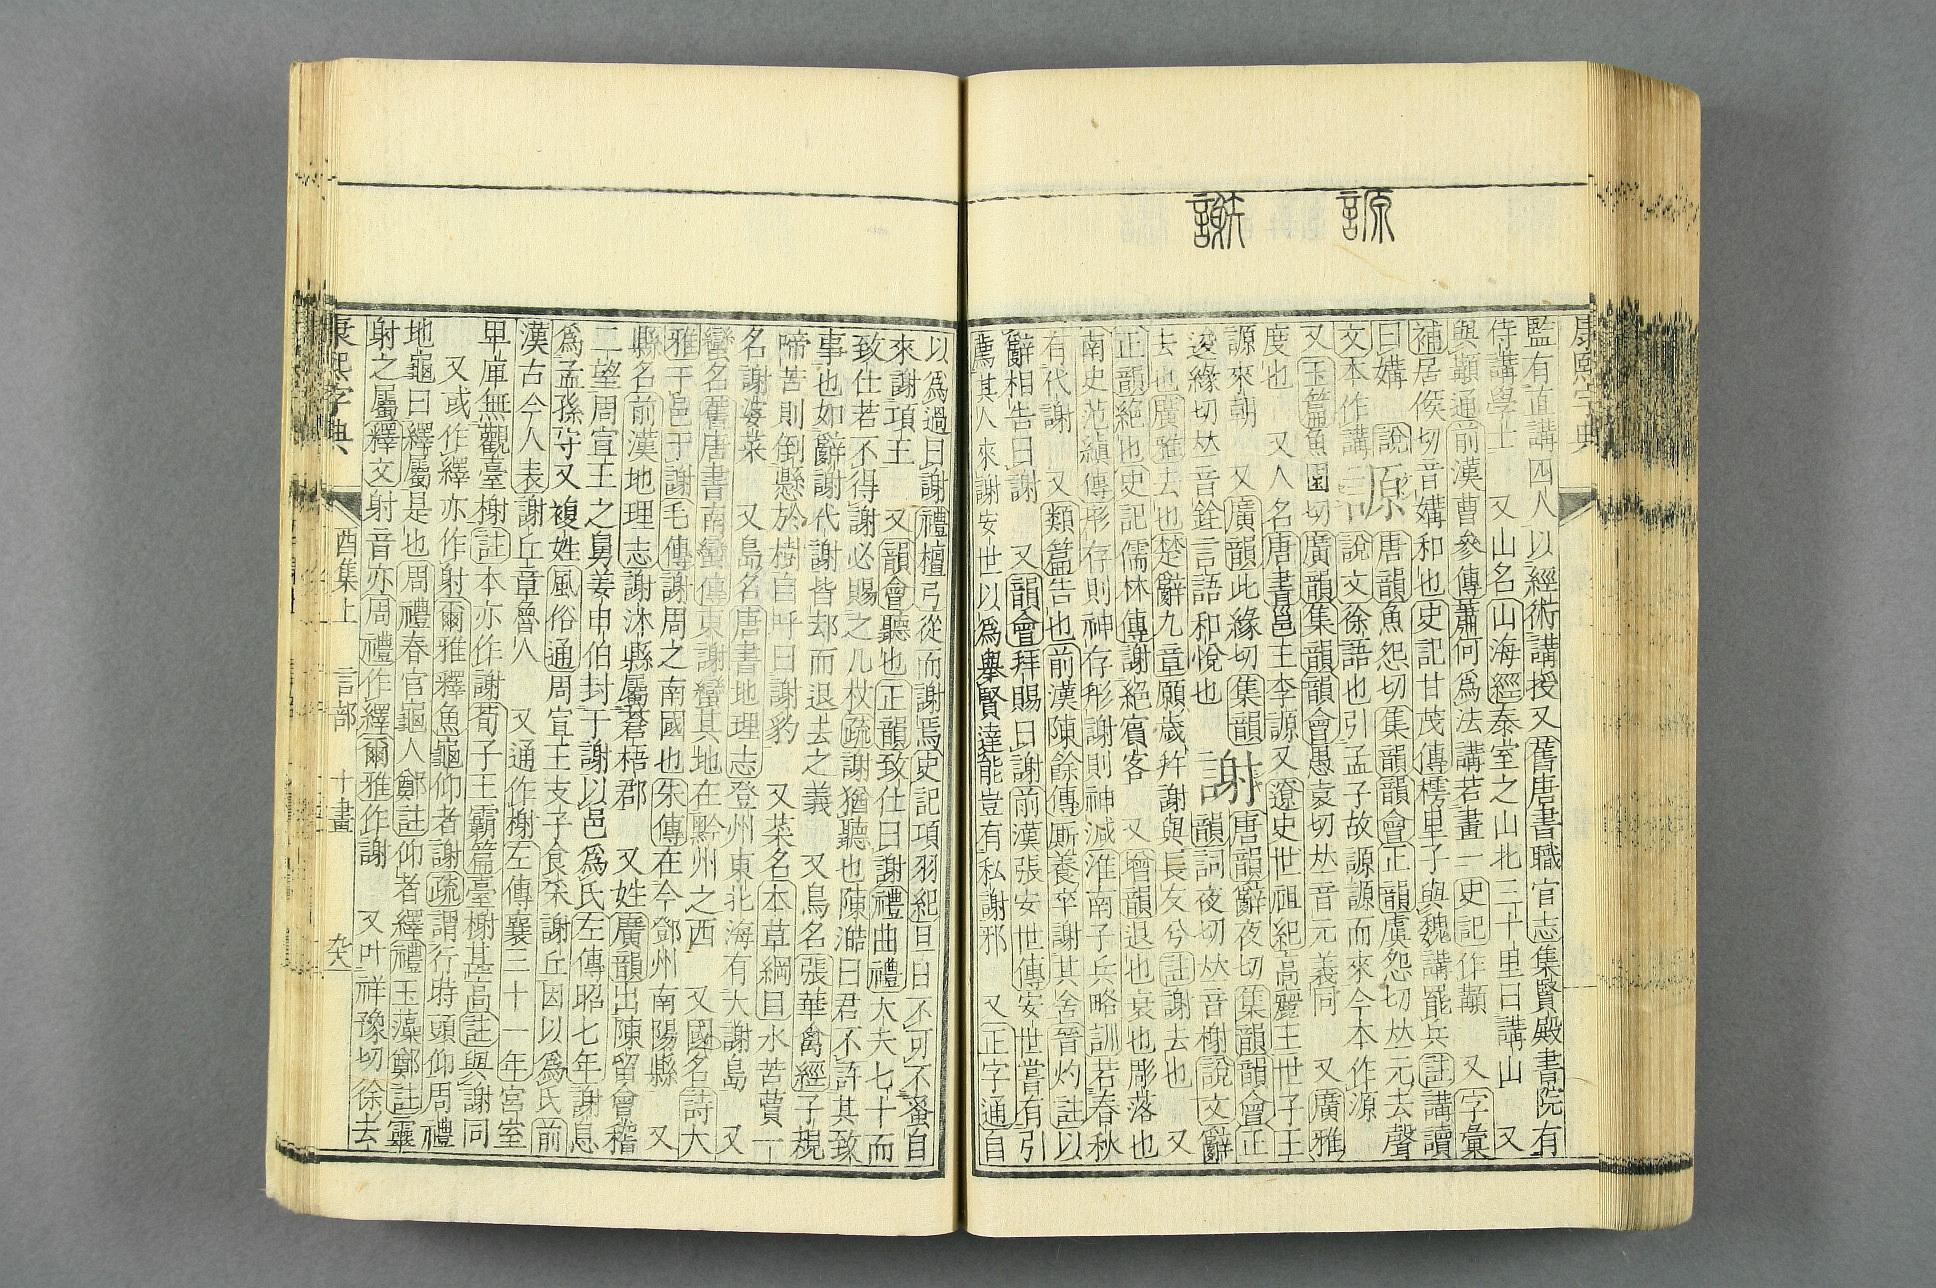 謝
謜
康熙字典
監有直講四人以經術講授又舊唐書職官志集賢殿書院有
侍講學士　又山名山海經泰室之山北三十里曰講山　又
與顜通前漢曹參傳蕭何爲法講若畫一史記作顜　又字彙
補居侯切音媾和也史記甘茂傳樗里子與魏講罷兵註講讀
曰媾　說
謜
唐韻魚怨切集韻韻會正韻虞怨切𠀤元去聲
文本作謜
說文徐語也引孟子故謜謜而來今本作源
又玉篇魚園切廣韻集韻韻會愚袁切𠀤音元義同　又廣雅
度也　又人名唐書邕王李謜又遼史世祖紀高麗王世子王
謜來朝　又廣韻此緣切集韻
謝
唐韻辭夜切集韻韻會正
逡緣切𠀤音銓言語和悅也
韻詞夜切𠀤音榭說文辭
去也廣雅去也楚辭九章願歲幷謝與長友兮註謝去也　又
正韻絕也史記儒林傳謝絕賓客　又增韻退也衰也彫落也
南史范縝傳形存則神存形謝則神滅淮南子兵略訓若春秋
有代謝　又類篇告也前漢陳餘傳廝養卒謝其舍晉灼註以
辭相告曰謝　又韻會拜賜曰謝前漢張安世傳安世嘗有引
薦其人來謝安世以爲舉賢達能豈有私謝邪　又正字通自
以爲過曰謝禮檀弓從而謝焉史記項羽紀旦日不可不蚤自
來謝項王　又韻會聽也正韻致仕曰謝禮曲禮大夫七十而
致仕若不得謝必賜之几杖疏謝猶聽也陳澔曰君不許其致
事也如辭謝代謝皆却而退去之義　又鳥名張華禽經子規
啼苦則倒懸於樹自呼曰謝豹　又菜名本草綱目水苦蕒一
名謝婆菜　又島名唐書地理志登州東北海有大謝島　又
蠻名舊唐書南蠻傳東謝蠻其地在黔州之西　又國名詩大
雅于邑于謝毛傳謝周之南國也朱傳在今鄧州南陽縣　又
縣名前漢地理志謝沐縣屬蒼梧郡　又姓廣韻出陳留會稽
二望周宣王之舅姜申伯封于謝以邑爲氏左傳昭七年謝息
爲孟孫守又複姓風俗通周宣王支子食菜謝丘因以爲氏前
漢古今人表謝丘章魯人　又通作榭左傳襄三十一年宮室
卑庳無觀臺榭註本亦作謝荀子王霸篇臺榭甚高註與謝同
又或作繹亦作射爾雅釋魚龜仰者謝疏謂行時頭仰周禮
地龜曰繹屬是也周禮春官龜人鄭註仰者繹禮玉藻鄭註靈
射之屬釋文射音亦周禮作繹爾雅作謝　又叶祥豫切徐去
康熙字典　酉集上　言部　十畫